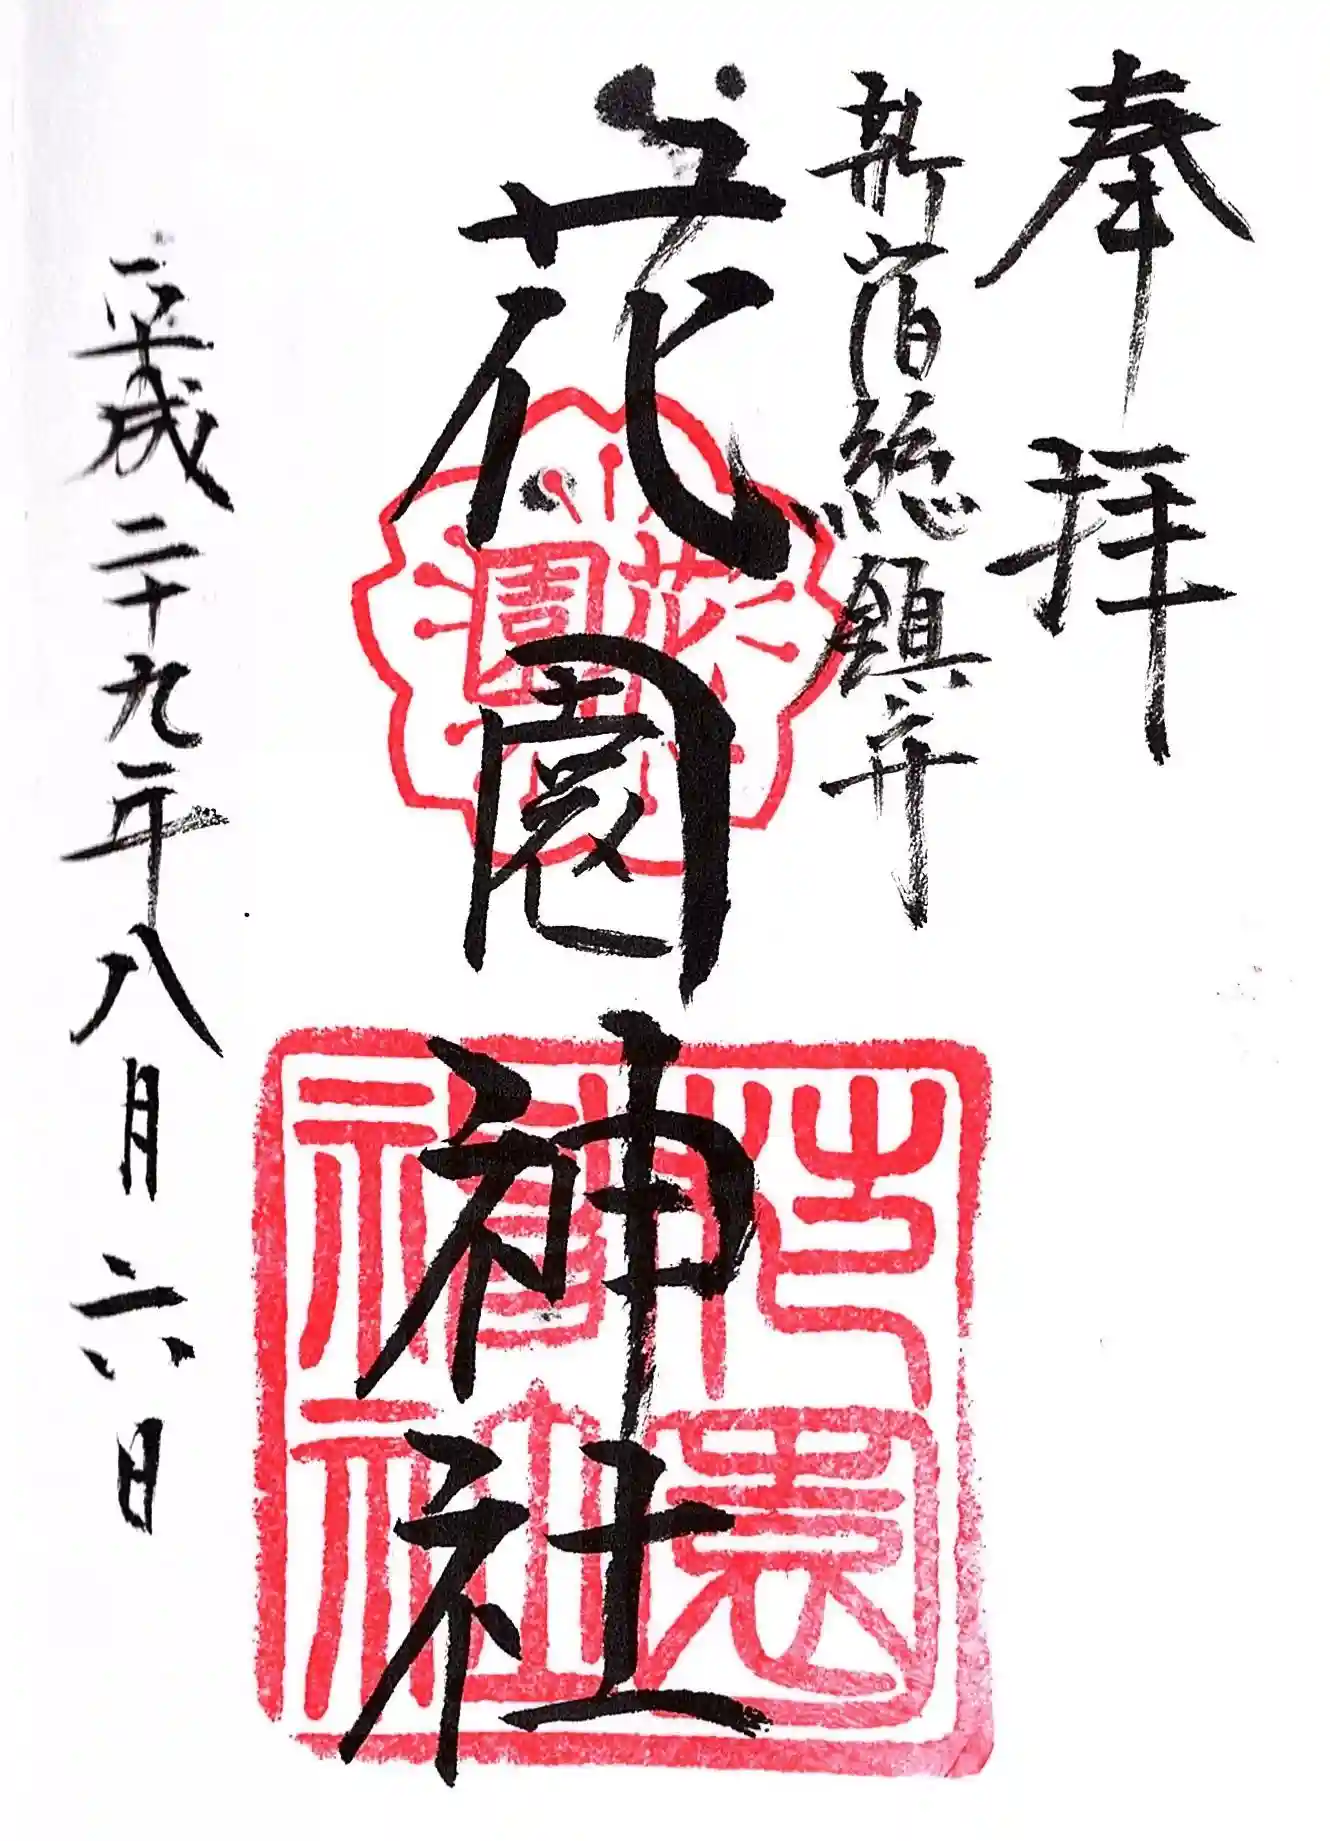 奉拝
新宿総鎮守
花園神社
花園
花園神社
平成二十九年八月六日